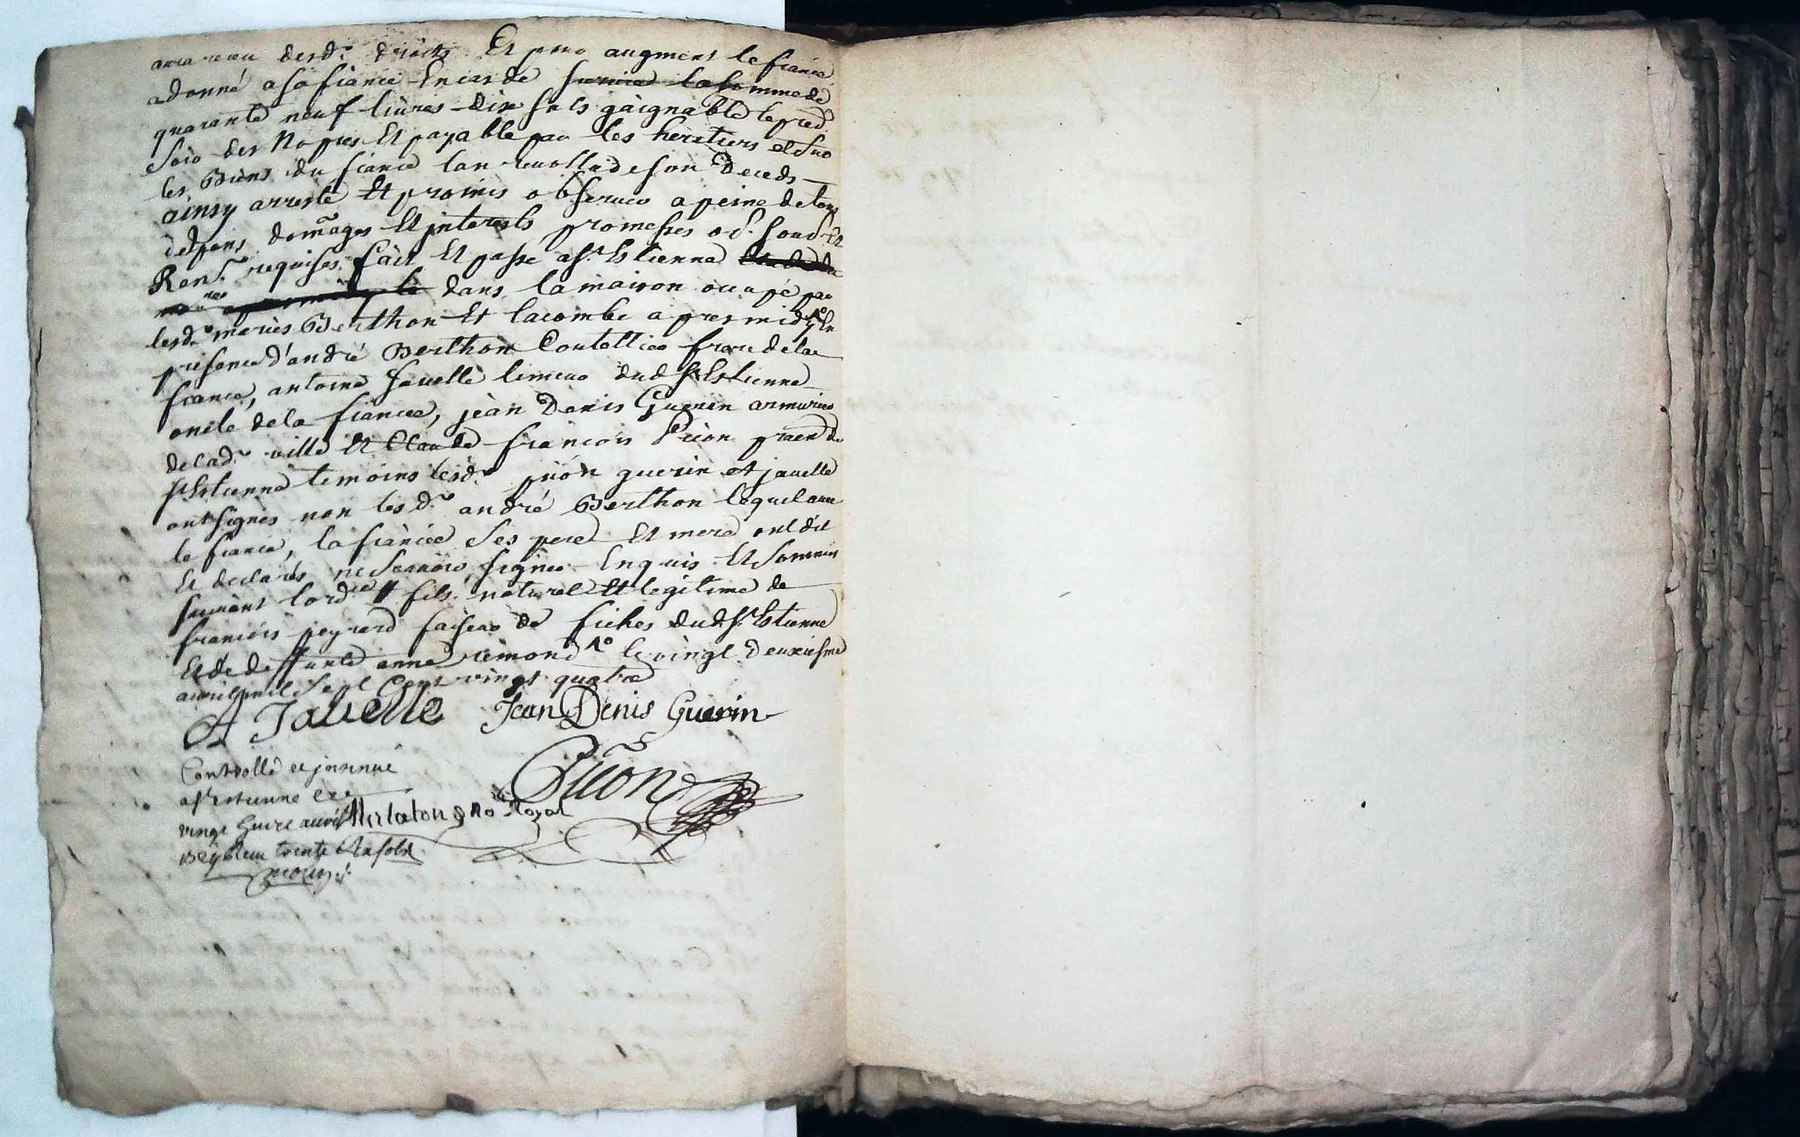 desd. droits Et pour augment le fiancé
a donné a sa fiancée En cas de survie la somme de
quarante neuf livres dix sols gaignable le pred
soir des Nopces Et payable par les heritiers et sur
les Biens du fiancé lan revollu de son Deceds
ainsy arresté Et promis observer a peine de tous
despens domages Et interests promesses obl. soub. Et
Ren. requises fait Et passé a St Estienne
dans la maison occupé par
lesd. mariés Berthon Et lacombe apres midy En
presence d'andré Berthon Coutellier frere de la
fiancée, antoine Javelle limeur dud St Estienne
oncle de la fiancée, jean Denis Guerin armurier
de lad. ville Et Claude françois Prion praen de
St Estienne temoins lesd. prion guerin et javelle
ont signés non lesd. andré Berthon lequel avec
le fiancé, la fiancée ses pere Et mere ont dit
Et declarés ne scavoir signer Enquis Et Sommés
suivant lord.ce // fils naturel Et legitime de
françois peyrard faiseur de fiches dud. St Estienne
Et de deffunte anne rémond le vingt deuxiesme
avril mil sept Cent vingt quatre
A Javelle Jean Denis Guerin
Controllé et insinué
a St Estienne ce
Prion
vingt avril No Royal
Reçu trente six sols